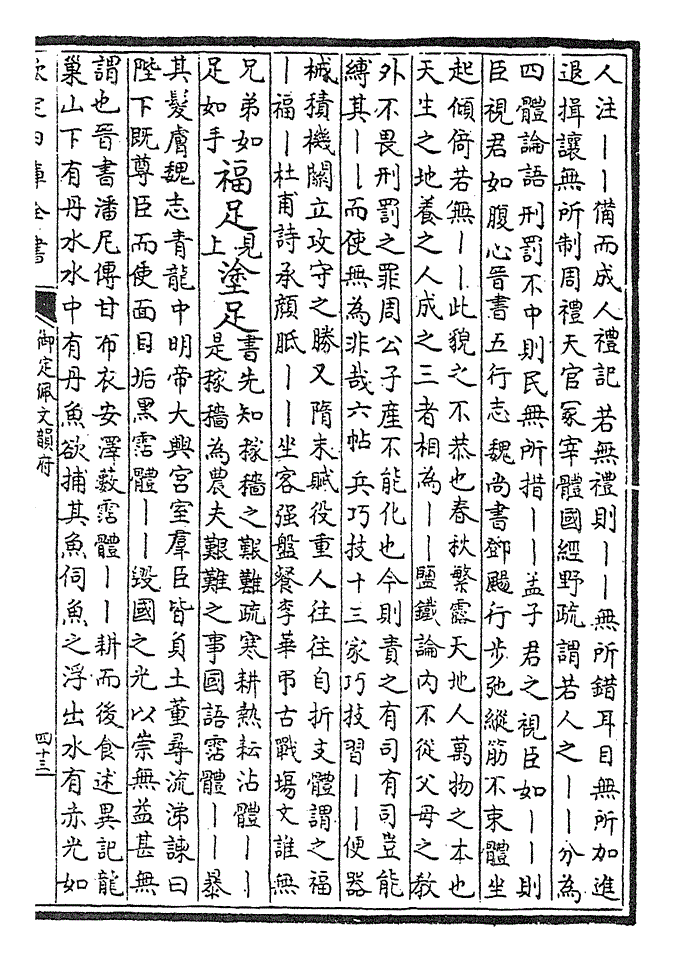 人注丨丨備而成人禮記若無禮則丨丨無所錯耳目無所加進
退揖讓無所制周禮天官冢宰體國經野疏謂若人之丨丨分為
四體論語刑罰不中則民無所措丨丨孟子君之視臣如丨丨則
臣視君如腹心晉書五行志魏尚書鄧颺行步弛縱筋不束體坐
起傾倚若無丨丨此貌之不恭也春秋繁露天地人萬物之本也
天生之地養之人成之三者相為丨丨鹽鐵論內不從父母之教
外不畏刑罰之罪周公子產不能化也今則責之有司有司豈能
縛其丨丨而使無為非哉六帖兵巧技十三家巧技習丨丨便器
械積機關立攻守之勝又隋末賦役重人往往自折支體謂之福
丨福丨杜甫詩承顔胝丨丨坐客强盤餐李華弔古戰場文誰無
兄弟如
足如手
福足
見
上
塗足
書先知稼穡之艱難疏寒耕熱耘沾體丨丨
是稼穡為農夫艱難之事國語霑體丨丨暴
其髮膚魏志青龍中明帝大興宮室羣臣皆負土董尋流涕諫曰
陛下既尊臣而使面目垢黑霑體丨丨毀國之光以崇無益甚無
謂也晉書潘尼傳甘布衣安澤藪霑體丨丨耕而後食述異記龍
巢山下有丹水水中有丹魚欲捕其魚伺魚之浮出水有赤光如
欽定四庫全書
御定佩文韻府
四十三